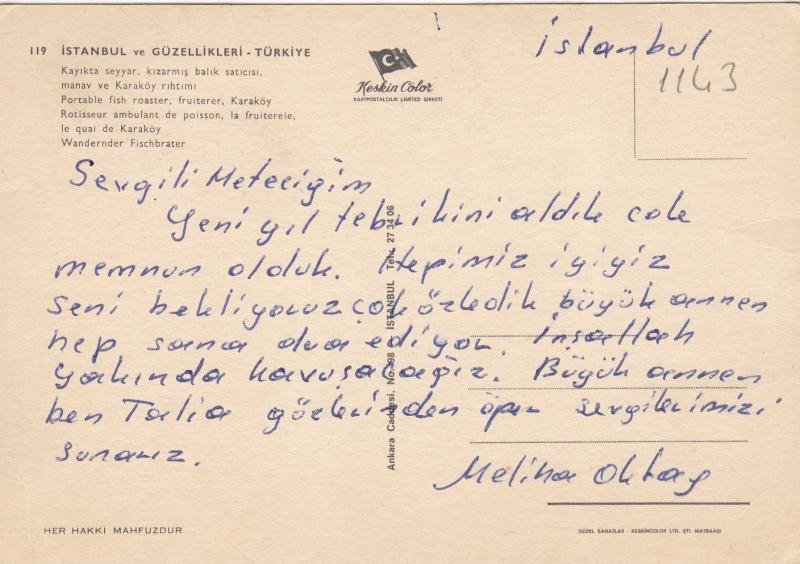 119 İSTANBUL ve GÜZELLİKLERİ - TÜRKİYE
Kayıkta seyyar, kızarmış balık satıcısı,
manav ve Karaköy rıhtımı
Portable fish roaster, fruiterer, Karaköy
Rotisseur ambulant de poisson, la fruitereie,
le quai de Karaköy
Wandernder Fischbrater
Keskin Color
KARTPOSTALCILIK LİMİTED ŞİRKETİ
İstanbul
1143
Sevgili Meteciğim
Yeni yıl tebrikini aldık çok
memnun olduk. Hepimiz iyiyiz
seni bekliyoruz çok özledik büyük annen
hep sana dua ediyor. İnşallah
yakında kavuşacağız. Büyük annen
ben Talia gözlerinden öper sevgilerimizi
sunarız.
Meliha Oktay
Ankara Caddesi. No. 98 İSTANBUL Tel: 27 34 06
HER HAKKI MAHFUZDUR
GÜZEL SANATLAR - KESKİNCOLOR LTD. ŞTİ. MATBAASI